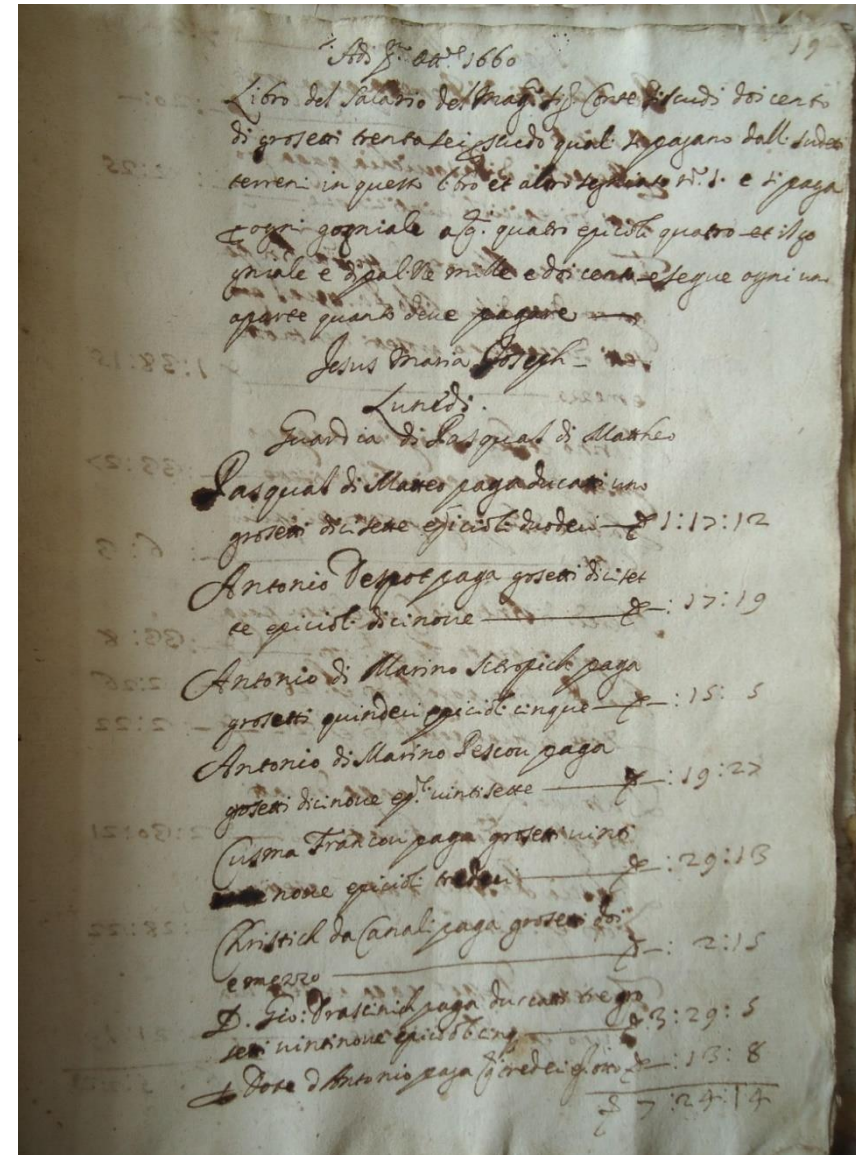 19
Adi p.º ott.e 1660
Libro del salario del Mag.co Sig.r Conte di scudi doicento
di grosetti trenta sei scudo quali si pagano dalli sudetti
terreni in questo libro et altro segniato N.º 1. e si paga
ogni gogniale a g. quatro e picioli quatro et il go
gniale è di palle mille e doicento e segue ogni un
aparte quanto deve pagare
Jesus Maria Joseph
Lunedi.
Guardia di Pasqual di Mattheo
Pasqual di Matteo paga ducati uno
grosetti dicisette e picioli duodeci — 1:17:12
Antonio Despot paga grosetti diciset
te e picioli dicinove — –: 17:19
Antonio di Marino paga
grosetti quindeci e picioli cinque — –: 15: 5
Antonio di Marino Pescou paga
grosetti dicinove e p. vintisette — –: 19:27
Cusma Francou paga grosetti vinti
nove e picioli tredeci — –: 29:13
Christich da Canali paga grosetti doi
e mezzo — –: 2:15
D. Gio: Drascinich paga ducati tre gro
setti vintinove e picioli cinq — 3:29:5
Dote d Antonio paga g. tredeci e p. otto –: 13: 8
7:24:14